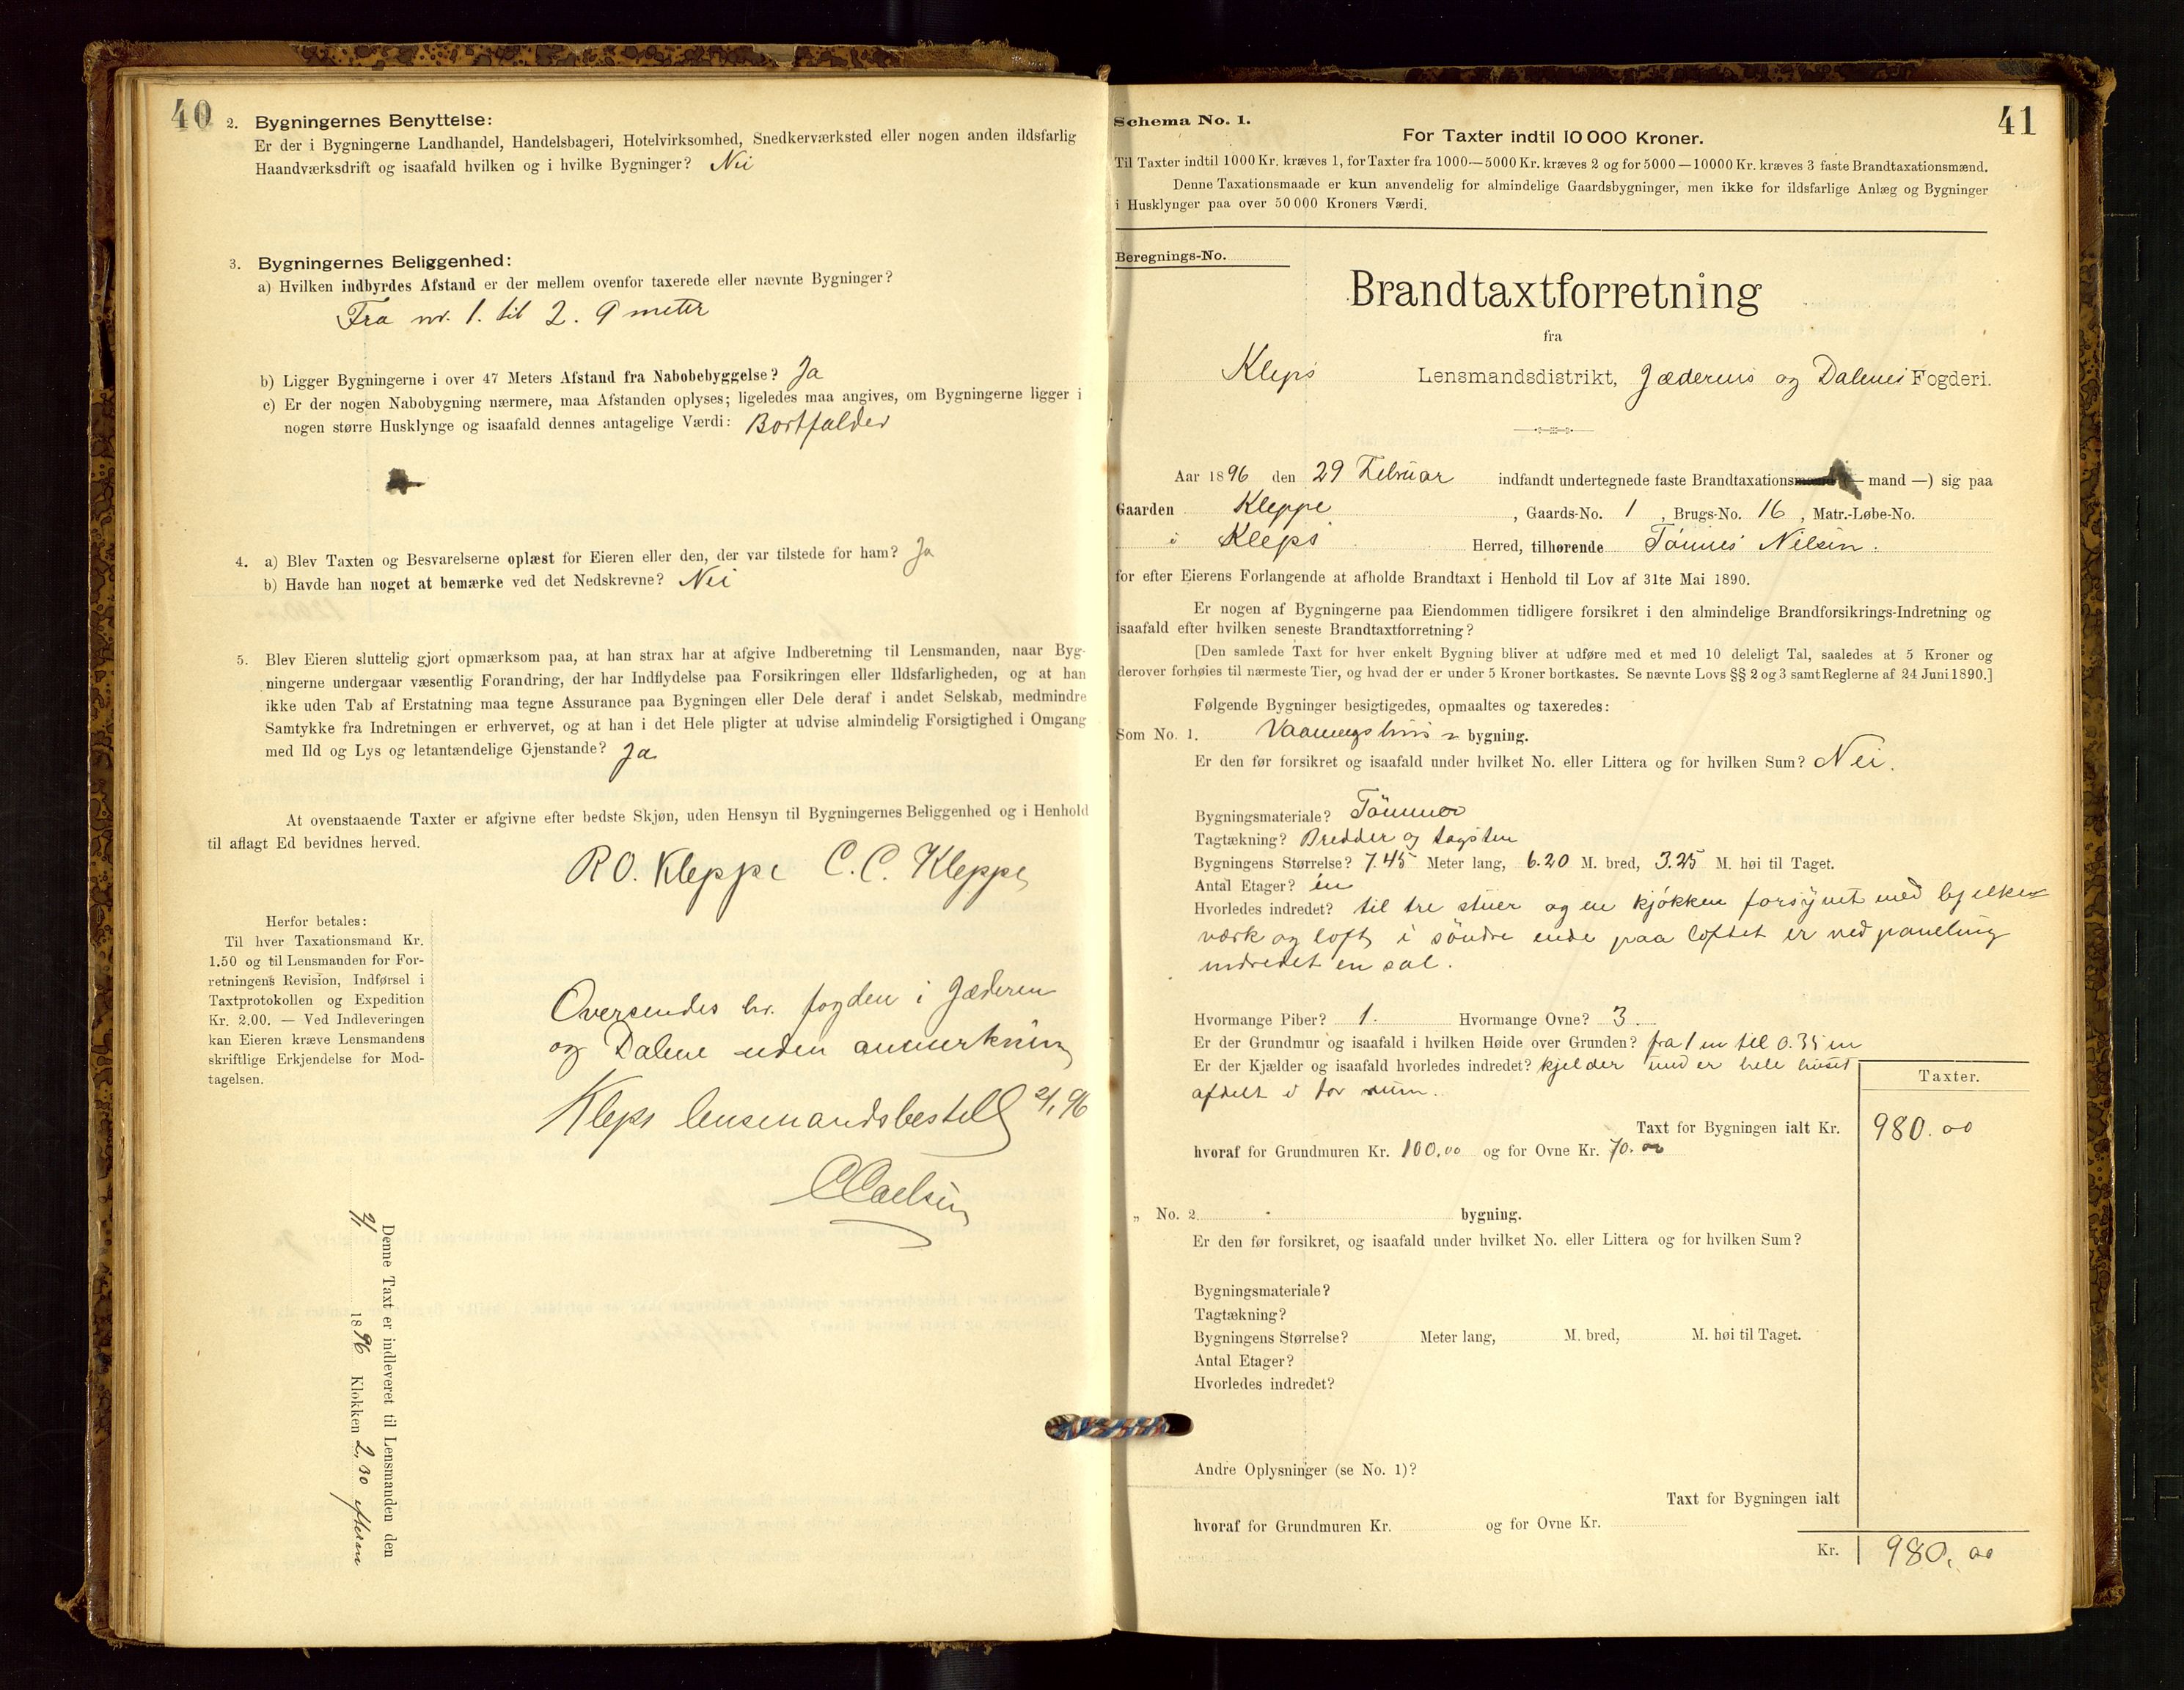 40
2. Bygningernes Benyttelse:
Er der i Bygningerne Landhandel, Handelsbageri, Hotelvirksomhed, Snedkerværksted eller nogen anden ildsfarlig
Haandværksdrift og isaafald hvilken og i hvilke Bygninger? Nei
3. Bygningernes Beliggenhed:
a) Hvilken indbyrdes Afstand er der mellem ovenfor taxerede eller nævnte Bygninger?
Fra nr. 1. til 2. 9 meter
b) Ligger Bygningerne i over 47 Meters Afstand fra Nabobebyggelse? Ja
c) Er der nogen Nabobygning nærmere, maa Afstanden oplyses; ligeledes maa angives, om Bygningerne ligger i
nogen større Husklynge og isaafald dennes antagelige Værdi: Bortfalder
4. a) Blev Taxten og Besvarelserne oplæst for Eieren eller den, der var tilstede for ham? Ja
b) Havde han noget at bemærke ved det Nedskrevne? Nei
5. Blev Eieren sluttelig gjort opmærksom paa, at han strax har at afgive Indberetning til Lensmanden, naar Byg-
ningerne undergaar væsentlig Forandring, der har Indflydelse paa Forsikringen eller Ildsfarligheden, og at han
ikke uden Tab af Erstatning maa tegne Assurance paa Bygningen eller Dele deraf i andet Selskab, medmindre
Samtykke fra Indretningen er erhvervet, og at han i det Hele pligter at udvise almindelig Forsigtighed i Omgang
med Ild og Lys og letantændelige Gjenstande? Ja
At ovenstaaende Taxter er afgivne efter bedste Skjøn, uden Hensyn til Bygningernes Beliggenhed og i Henhold
til aflagt Ed bevidnes herved.
R O. Kleppe C. C. Kleppe
Herfor betales:
Til hver Taxationsmand Kr.
1.50 og til Lensmanden for For-
retningens Revision, Indførsel i
Taxtprotokollen og Expedition
Kr. 2.00. — Ved Indleveringen
kan Eieren kræve Lensmandens
skriftlige Erkjendelse for Mod-
tagelsen.
Oversendes hr. fogden i Jæderen
og Dalene uden anmerkning
Kleps lensmandsbestill 96
Denne Taxt er indleveret til Lensmanden den
1896 Klokken 2,30 efterm
41
Schema No. 1.
For Taxter indtil 10 000 Kroner.
Til Taxter indtil 1000 Kr. kræves 1, for Taxter fra 1000—5000 Kr. kræves 2 og for 5000—10000 Kr. kræves 3 faste Brandtaxationsmænd.
Denne Taxationsmaade er kun anvendelig for almindelige Gaardsbygninger, men ikke for ildsfarlige Anlæg og Bygninger
i Husklynger paa over 50 000 Kroners Værdi.
Beregnings-No.
Brandtaxtforretning
fra
Kleps Lensmandsdistrikt, Jæderens og Dalenes Fogderi.
Aar 1896 den 29 Februar indfandt undertegnede faste Brandtaxations — mand —) sig paa
Gaarden Kleppe, Gaards-No. 1, Brugs-No. 16, Matr.-Løbe-No.
i Kleps Herred, tilhørende Tönnes Nilsen.
for efter Eierens Forlangende at afholde Brandtaxt i Henhold til Lov af 31te Mai 1890.
Er nogen af Bygningerne paa Eiendommen tidligere forsikret i den almindelige Brandforsikrings-Indretning og
isaafald efter hvilken seneste Brandtaxtforretning?
[Den samlede Taxt for hver enkelt Bygning bliver at udføre med et med 10 deleligt Tal, saaledes at 5 Kroner og
derover forhøies til nærmeste Tier, og hvad der er under 5 Kroner bortkastes. Se nævnte Lovs §§ 2 og 3 samt Reglerne af 24 Juni 1890.]
Følgende Bygninger besigtigedes, opmaaltes og taxeredes:
Som No. 1. Vaaningshus bygning.
Er den før forsikret og isaafald under hvilket No. eller Littera og for hvilken Sum? Nei.
Bygningsmateriale? Tömmer
Tagtækning? Bredder og tagsten
Bygningens Størrelse? 7.45 Meter lang, 6.20 M. bred, 3.25 M. høi til Taget.
Antal Etager? én
Hvorledes indredet? til tre stuer og en kjøkken forsynet med bjelke-
værk og loft, i söndre ende paa loftet er ved paneling
indredet en sal.
Hvormange Piber? 1. Hvormange Ovne? 3.
Er der Grundmur og isaafald i hvilken Høide over Grunden? fra 1 m til 0.35 m
Er der Kjælder og isaafald hvorledes indredet? kjelder under hele huset
afdelt i to rum.
Taxter.
Taxt for Bygningen ialt Kr. 980.00
hvoraf for Grundmuren Kr. 100,00 og for Ovne Kr. 70.00
„ No. 2. bygning.
Er den før forsikret, og isaafald under hvilket No. eller Littera og for hvilken Sum?
Bygningsmateriale?
Tagtækning?
Bygningens Størrelse? Meter lang, M. bred, M. høi til Taget.
Antal Etager?
Hvorledes indredet?
Andre Oplysninger (se No. 1)?
Taxt for Bygningen ialt
hvoraf for Grundmuren Kr. og for Ovne Kr.
Kr. 980,00